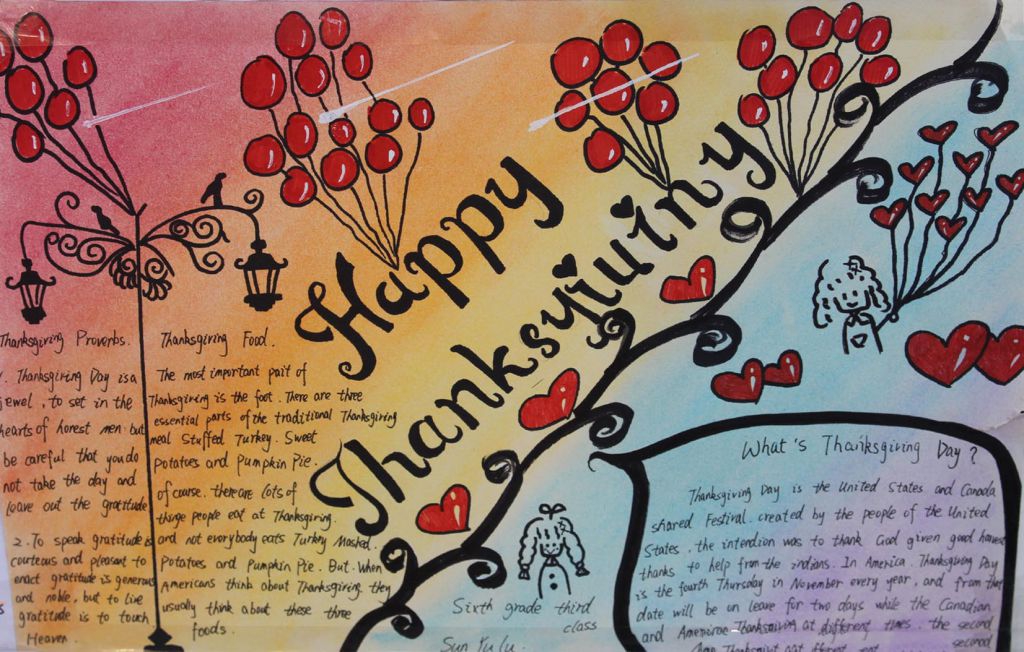 Happy
Thanksyiuiny
Thanksgiving Proverbs.
Thanksgiving Day is a
jewel, to set in the
hearts of horest men. but
be careful that you do
not take the day and
leave out the gratitude
2. To speak gratitude is
courteous and pleasant to
enact gratitude is generous
and noble, but to live
gratitude is to touch
Heaven.
Thanksgiving Food.
The most important pait of
Thanksgiving is the foot. There are three
essential parts of the traditional Thanksgiving
meal Stuffed Turkey. Sweet
Potatoes and Pumpkin Pie.
of course. there are lots of
things people eat at Thanksgiving.
and not everybody eats Turkey Mashed.
Potatoes and Pumpkin Pie. But. When
Americans think about Thanksgiving. they
usually think about these three
foods.
Sixth grade third
class
Sun Yu Lu.
What's Thanksgiving Day?
Thanksgiving Day is the United States and Canada
shared Festival. created by the people of the United
States, the intention was to thank God given good harvest
thanks to help from the indians. In America. Thanksgiving Day
is the fourth Thursday in November every year, and from that
date will be on leave for two days while the Canadian
and Thanksgiving at different times. the second
second